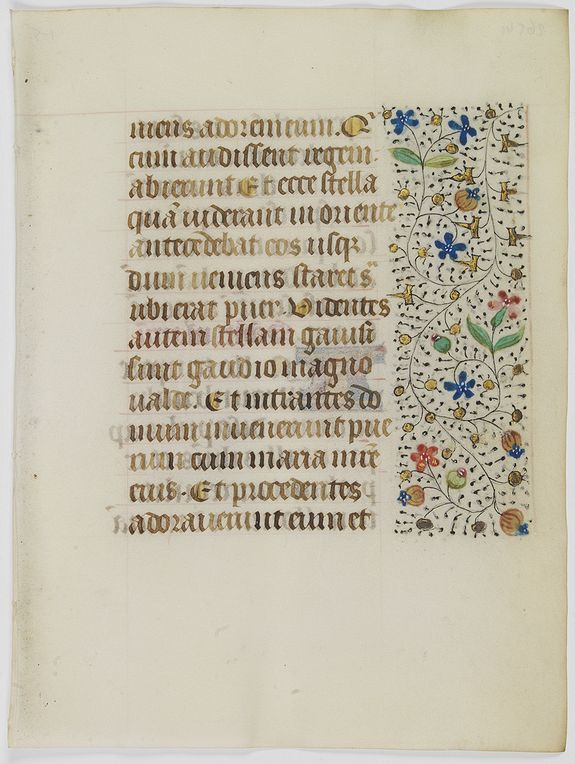 niens adorem eum. Qͥ
cum audissent regem
abierunt Et ecce stella
quā uiderant in oriente
antecedebat eos usq
dum ueniens staret sͣ
ubi erat puer. Videntes
autem stellam gauisi
sunt gaudio magno
ualde. Et intrantes do
mum inuenerunt pue
rum cum maria mr̄e
eius. Et procedentes
adorauerunt eum et